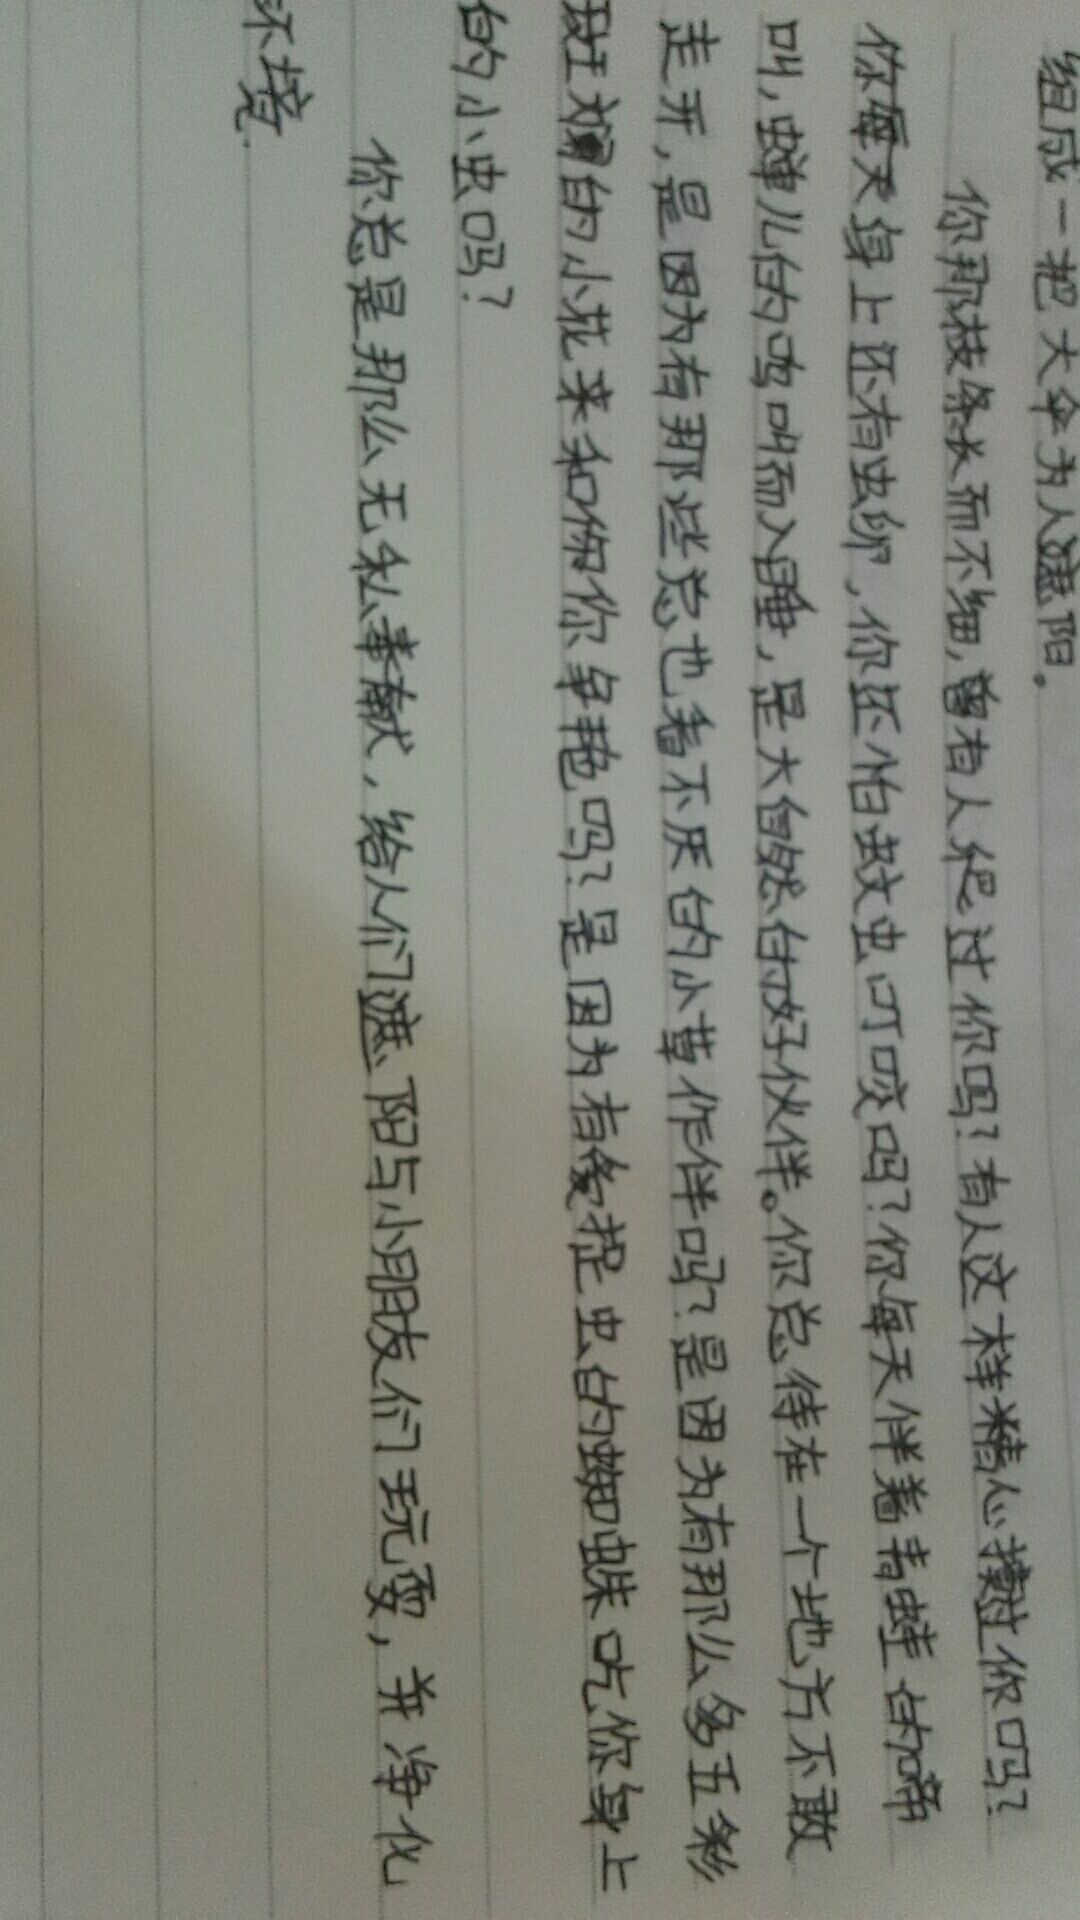 组成一把大伞为人遮阳。
你那枝条长而不细,曾有人爬过你吗?有人这样精心摸过你吗?
你每天身上还有虫卵,你还怕蚊虫叮咬吗?你每天伴着青蛙的啼
叫,蝉儿的鸣叫而入睡,是大自然的好伙伴。你总待在一个地方不敢
走开,是因为有那些总也看不厌的小草作伴吗?是因为有那么多五彩
斑斓的小花来和你争艳吗?是因为有爱捉虫的蜘蛛吃你身上
的小虫吗?
你总是那么无私奉献,给人们遮阳与小朋友们玩耍,并净化
环境.